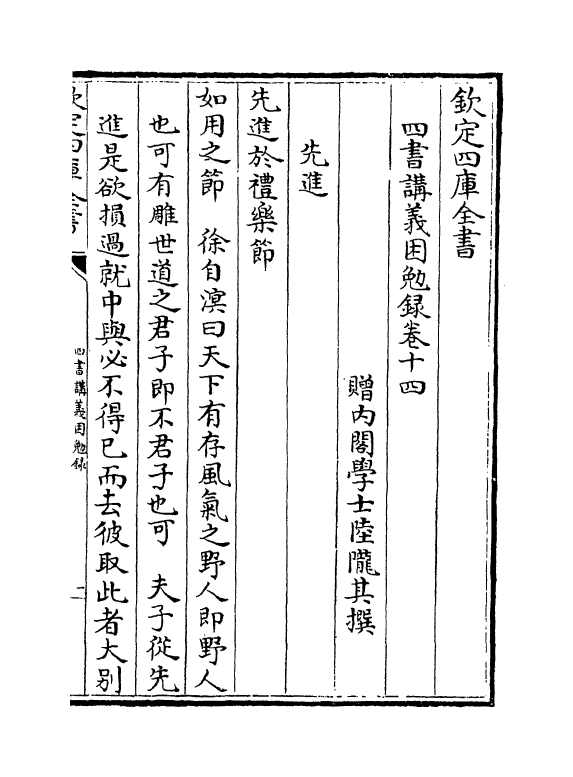 欽定四庫全書
四書講義困勉録卷十四
贈内閣學士陸隴其撰
先進
先進於禮樂節
如用之節　徐自溟曰天下有存風氣之野人即野人
也可有雕世道之君子即不君子也可　夫子從先
進是欲損過就中與必不得已而去彼取此者大别
欽定四庫全書
四書講義困勉録